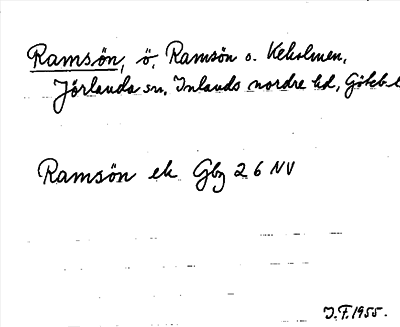 Ramsön, ö, Ramsön o. Keholmen,
Jörlanda sn, Inlands nordre hd, Göteb.
Ramsön ek Gbg 26 NV
J.F. 1955.